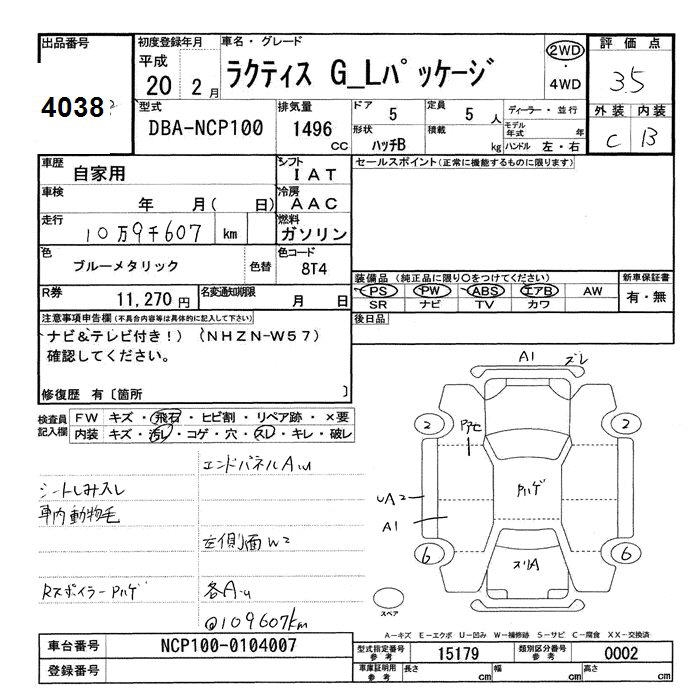 出品番号
4038
初度登録年月
平成
20 2月
車名・グレード
ラクティス G_Lパッケージ
2WD
・
4WD
評価点
3.5
型式
DBA-NCP100
排気量
1496
CC
ドア
5
定員
5 人
形状
ハッチB
積載
kg
ディーラー・並行
モデル年式 年
ハンドル 左・右
外装 内装
C B
車歴
自家用
シフト
IAT
車検
年 月( 日)
冷房
AAC
走行
10万9千607 km
燃料
ガソリン
色
ブルーメタリック
色替
色コード
8T4
R券
11,270円
名変通知期限
月 日
セールスポイント(正常に機能するものに限ります)
装備品 (純正品に限り○をつけてください)
PS PW ABS エアB AW
SR ナビ TV カワ
新車保証書
有・無
後日品
注意事項申告欄(不具合内容等は具体的に記入して下さい)
ナビ&テレビ付き!) (NHZN-W57)
確認してください。
修復歴 有〔箇所 〕
検査員
記入欄
FW キズ・飛石・ヒビ割・リペア跡・×要
内装 キズ・汚レ・コゲ・穴・スレ・キレ・破レ
エンドパネルAu
シートしみ入レ
車内動物毛
左側面W2
Rスポイラーアハゲ
各A-u
@109607km
A1 ズレ
2 2
アハゲ
UA2
A1
6 6
スリA
スペア
A-キズ E-エクボ U-凹み W-補修跡 S-サビ C-腐食 XX-交換済
車台番号
NCP100-0104007
登録番号
型式指定番号
参考
15179
類別区分番号
参考
0002
車庫証明用
参考
長さ cm 幅 cm 高さ cm